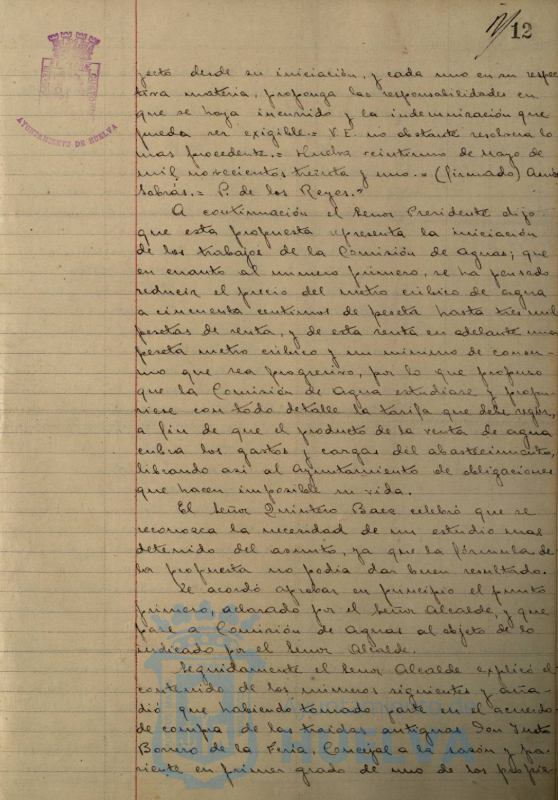 12
AYUNTAMIENTO DE HUELVA
yecto desde su iniciación, y cada uno en su respec-
tiva materia, proponga las responsabilidades en
que se haya incurrido y la indemnización que
pueda ser exigible.= V.E. no obstante resolverá lo
mas procedente.= Huelva veintiuno de Mayo de
mil novecientos treinta y uno.= (firmado)
Sabrás.= P. de los Reyes."
A continuación el Señor Presidente dijo
que esta propuesta representa la iniciación
de los trabajos de la Comisión de Aguas; que
en cuanto al número primero, se ha pensado
reducir el precio del metro cúbico de agua
a cincuenta centimos de peseta hasta tres mil
pesetas de renta, y de esta renta en adelante una
peseta metro cúbico y un minimo de consu-
mo que sea progresivo, por lo que propuso
que la Comisión de Agua estudiase y propu-
siese con todo detalle la tarifa que debe regir,
a fin de que el producto de la venta de agua
cubra los gastos y cargas del abastecimiento,
librando asi al Ayuntamiento de obligaciones
que hacen imposible su vida.
El Señor Quintero Baez celebró que se
reconozca la necesidad de un estudio mas
detenido del asunto, ya que la fórmula de
la propuesta no podia dar buen resultado.
Se acordó aprobar en principio el punto
primero, aclarado por el Señor Alcalde, y que
pase a Comisión de Aguas al objeto de lo
indicado por el Señor Alcalde.
Seguidamente el Señor Alcalde explicó el
contenido de los números siguientes y aña-
dió que habiendo tomado parte en el acuerdo
de compra de las traidas antiguas Don Justo
Borrero de la Feria, Concejal a la sazón y pa-
riente en primer grado de uno de los propie-
HUELVA